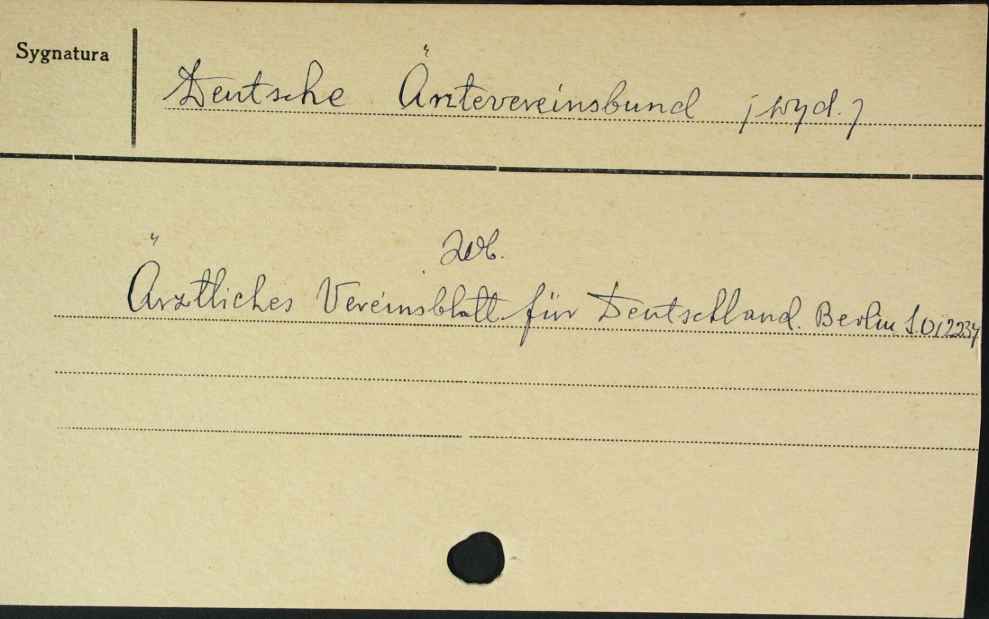 Sygnatura
Deutsche Ärztevereinsbund /wyd./
zob.
Ärztliches Vereinsblatt für Deutschland. Berlin